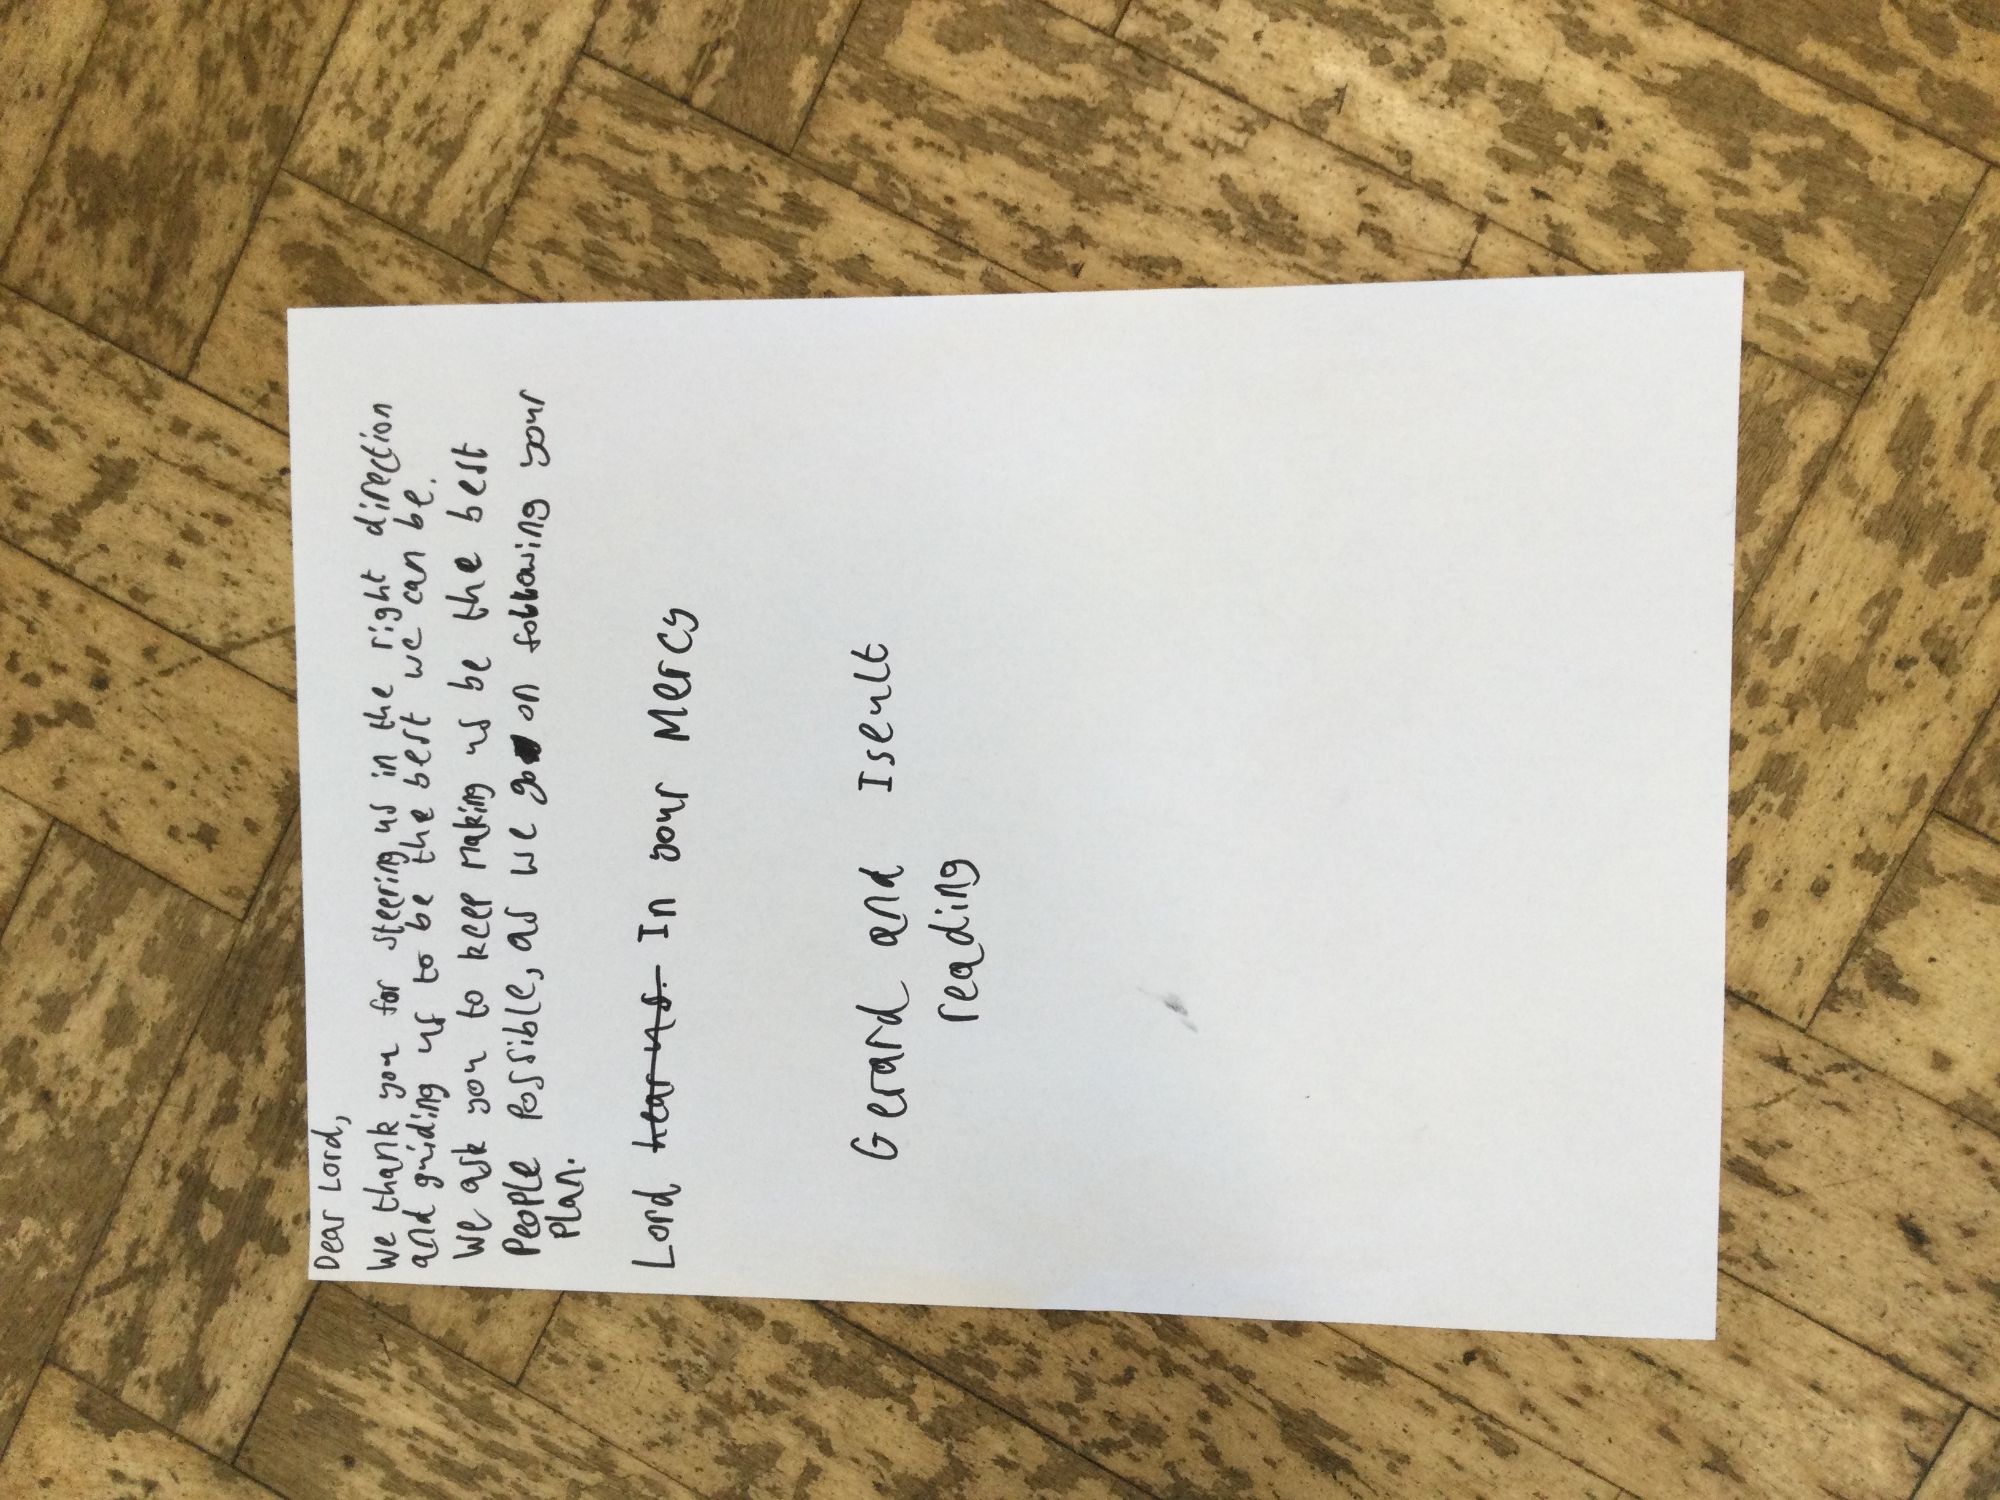 Dear Lord,
We thank you for steering us in the right direction
and guiding us to be the best we can be.
We ask you to keep making us be the best
People Possible, as we go on following your
Plan.
Lord hear us. In your Mercy
Gerard and Iseult
reading